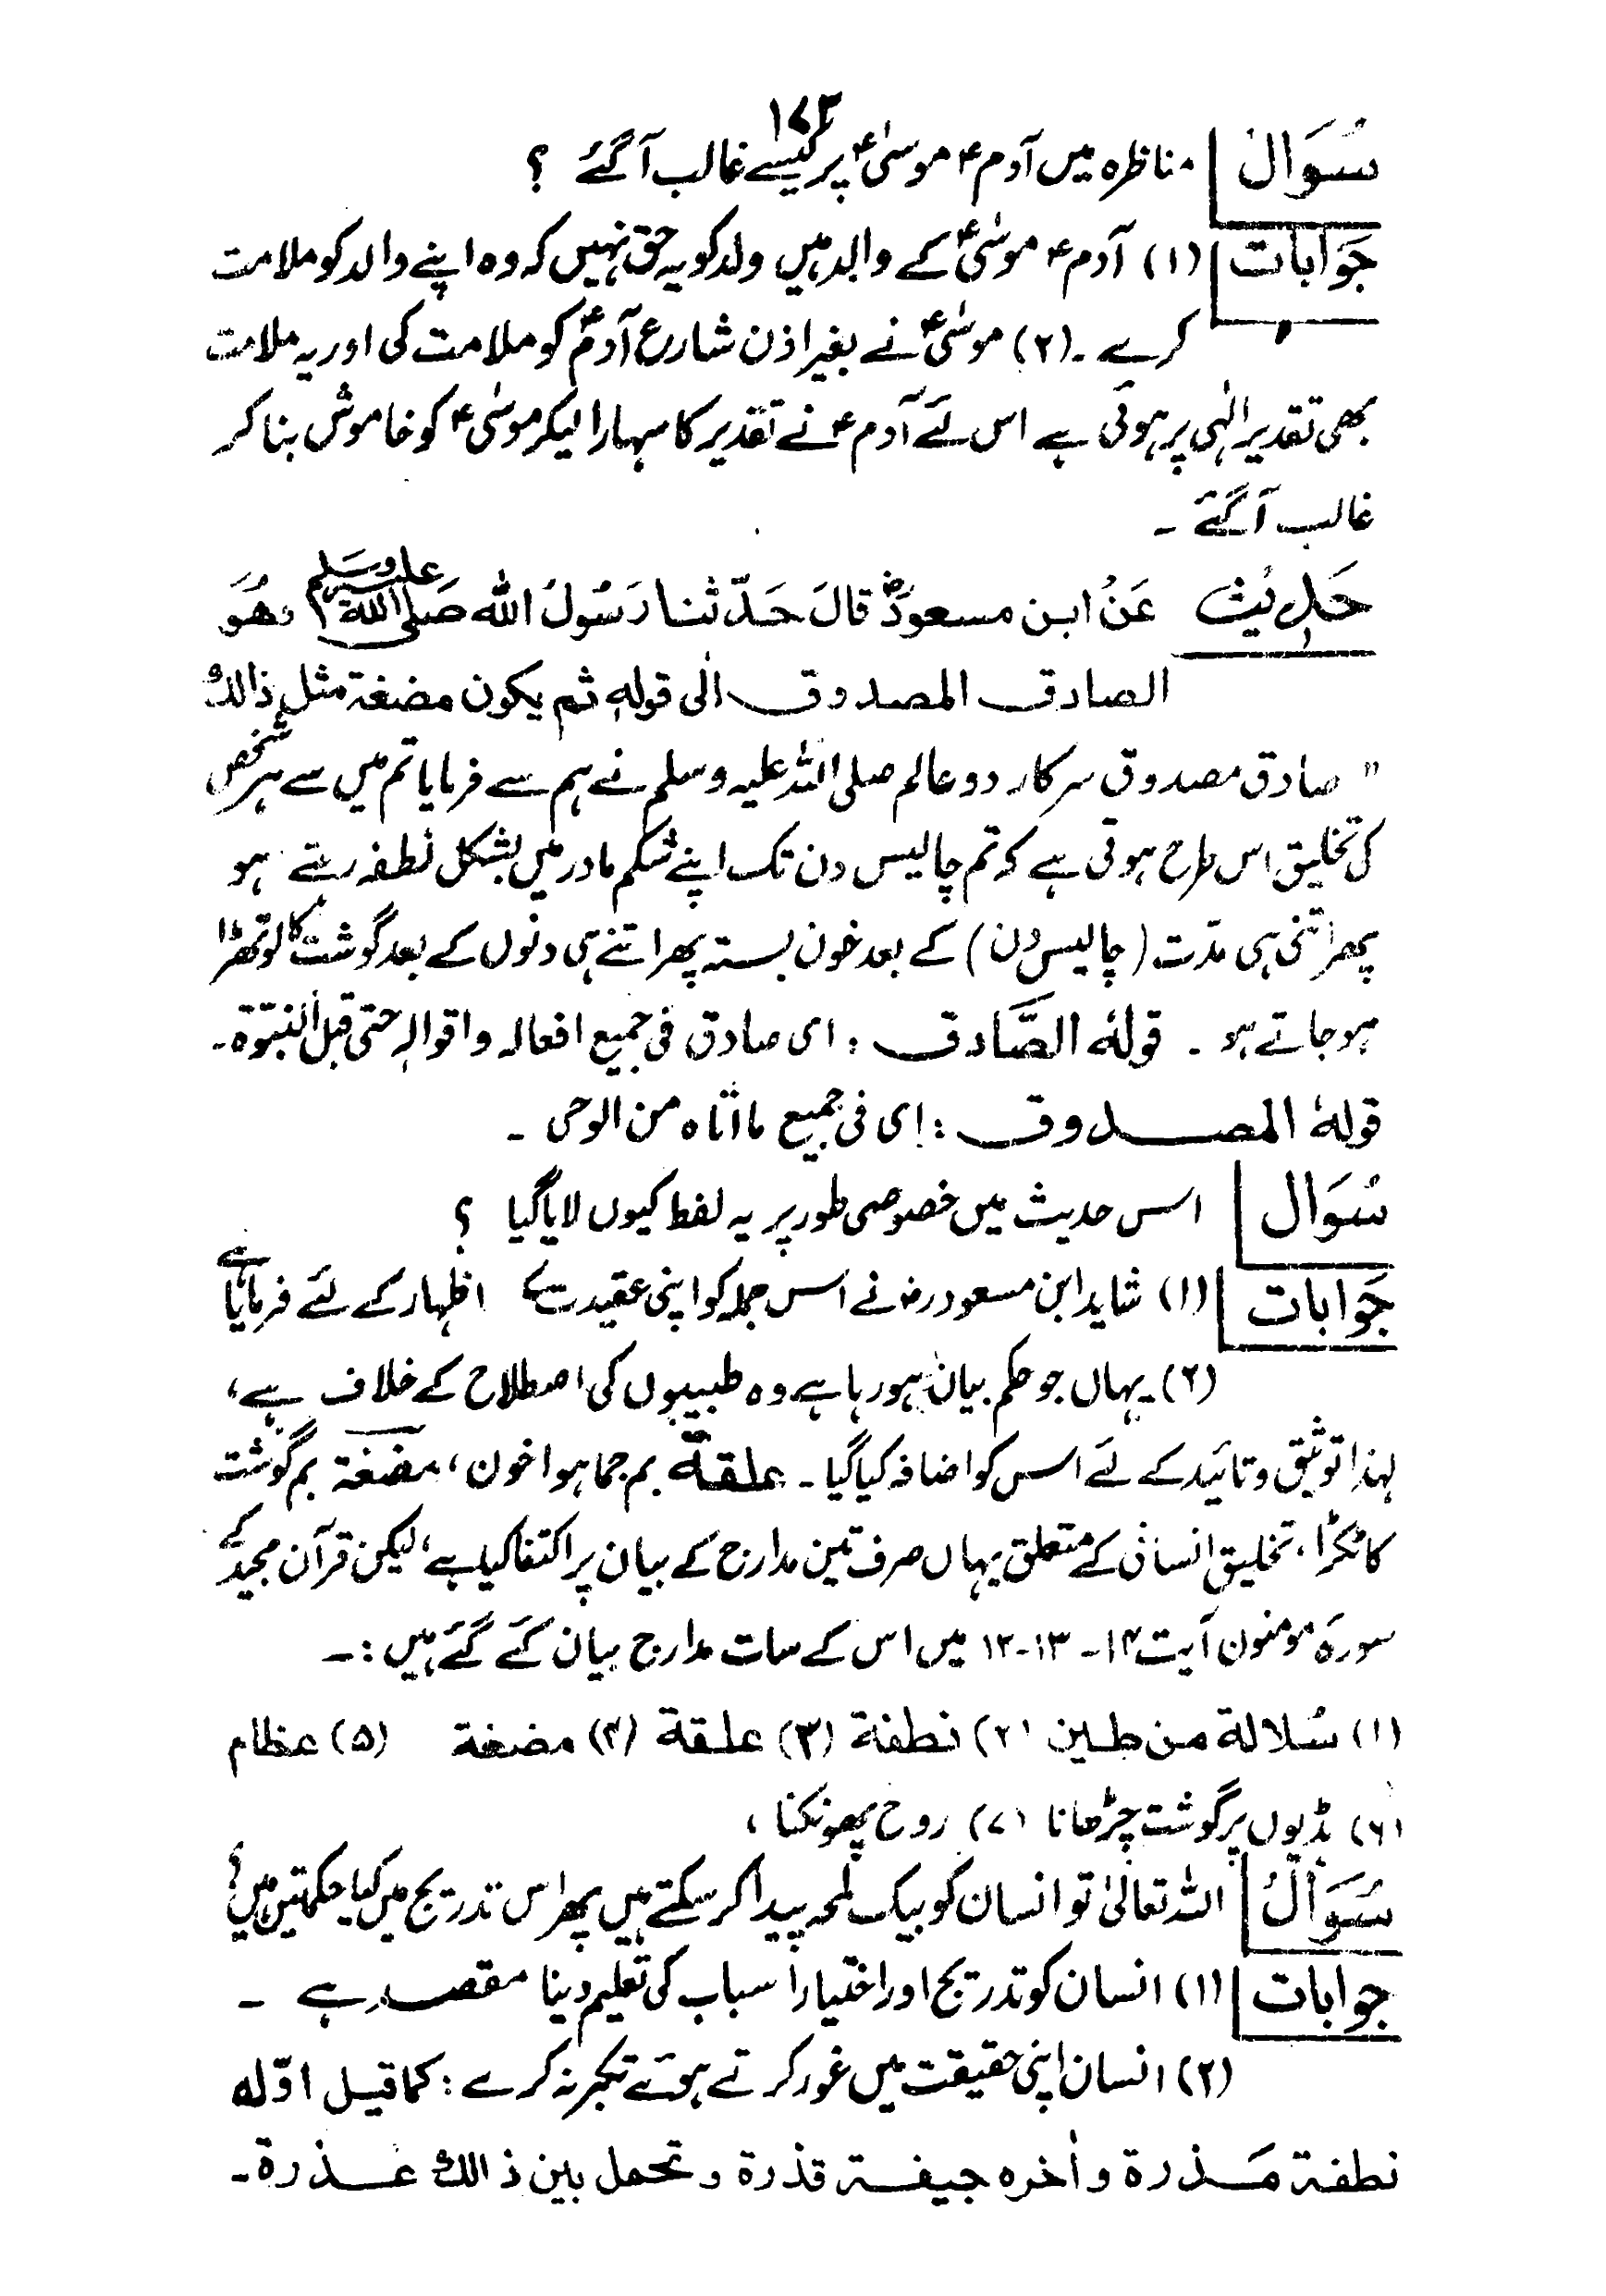 ۱۷۳
سُوَال مناظرہ میں آدم ؑ موسیٰ ؑ پر کیسے غالب آگئے ؟
جَوَابات (۱) آدم ؑ موسیٰ ؑ کے والد ہیں ولد کو یہ حق نہیں کہ وہ اپنے والد کو ملامت
کرے ۔ (۲) موسیٰ ؑ نے بغیر اذن شارع آدم ؑ کو ملامت کی اور یہ ملامت
بھی تقدیر الٰہی پر ہوتی ہے اس لئے آدم ؑ نے تقدیر کا سہارا لیکر موسیٰ ؑ کو خاموش بنا کر
غالب آگئے ۔
حَدِیْث عَنْ ابن مسعودؓ قالَ حَدّثنا رَسُولُ الله صَلی اللہ علیہ وسلم وھُوَ
الصادق المصدوق الٰی قولهٖ ثم یکون مضغۃ مثل ذالک
" صادق مصدوق سرکار دو عالم صلی اللہ علیہ وسلم نے ہم سے فرمایا تم میں سے ہر شخص
کی تخلیق اس طرح ہوتی ہے کہ تم چالیس دن تک اپنے شکم مادر میں بشکل نطفہ رہتے ہو
پھر اتنی ہی مدّت (چالیس دن) کے بعد خون بستہ پھر اتنے ہی دنوں کے بعد گوشت کا لوتھڑا
ہو جاتے ہو ۔ قولهٗ الصَّادق : ای صادق فی جمیع افعاله و اقوالهٖ حتی قبل النبوّة ۔
قولهٗ المصدوق : ای فی جمیع ما اتاه من الوحی ۔
سُوَال اس حدیث میں خصوصی طور پر یہ لفظ کیوں لایا گیا ؟
جَوَابات (۱) شاید ابن مسعود رضہ نے اس جملہ کو اپنی عقیدت کے اظہار کے لئے فرمایا ہے
(۲) یہاں جو حکم بیان ہو رہا ہے وہ طبیبوں کی اصطلاح کے خلاف ہے،
لہٰذا توثیق و تائید کے لئے اس کو اضافہ کیا گیا ۔ علقۃ بم جما ہوا خون ، مضغۃ بم گوشت
کا ٹکڑا ، تخلیق انسانی کے متعلق یہاں صرف تین مدارج کے بیان پر اکتفا کیا ہے، لیکن قرآن مجید کے
سورۂ مومنون آیت ۱۴۔ ۱۳۔۱۲ میں اس کے سات مدارج بیان کئے گئے ہیں :۔
(۱) سُلالة من طین (۲) نطفة (۳) علقة (۴) مضغة (۵) عظام
(۶) ہڈیوں پر گوشت چڑھانا (۷) روح پھونکنا ،
سُوَالُ اللہ تعالیٰ تو انسان کو بیک لمحہ پیدا کر سکتے ہیں پھر اس تدریج میں کیا حکمتیں ہیں ؟
جوابات (۱) انسان کو تدریج اور اختیار اسباب کی تعلیم دینا مقصد ہے ۔
(۲) انسان اپنی حقیقت میں غور کرتے ہوئے تکبر نہ کرے : کما قیل اوّله
نطفة مَذرة و اٰخره جیفة قذرة و تحمل بین ذالک عذرة ۔